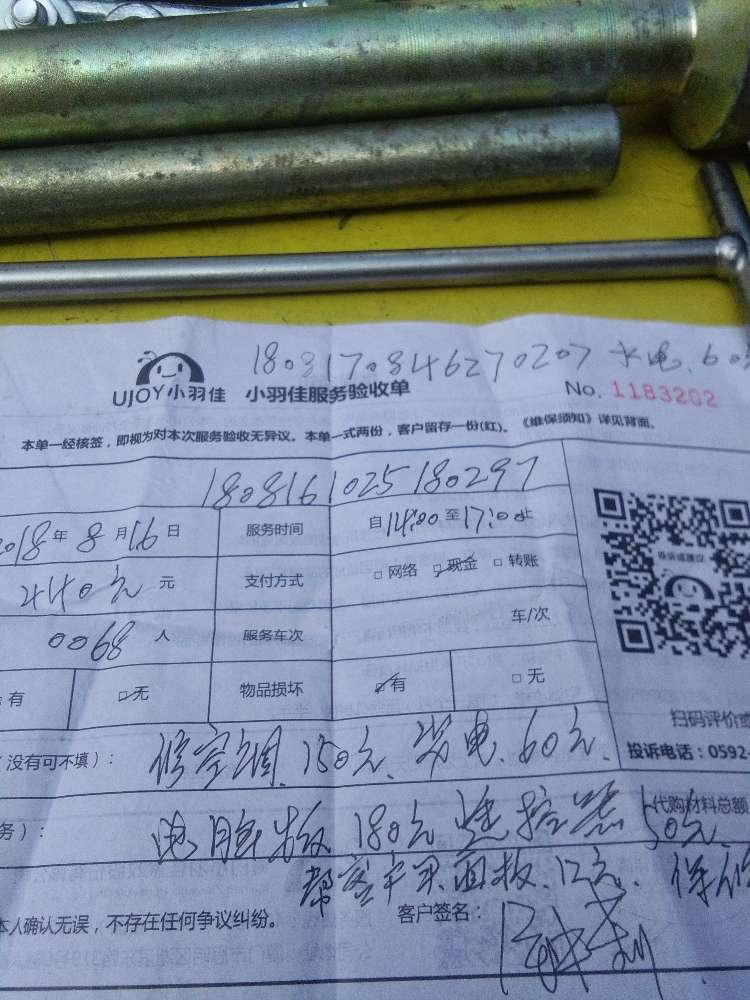 1808170846270207 水电.60
UJOY小羽佳 小羽佳服务验收单
No. 1183202
本单一经核签，即视为对本次服务验收无异议。本单一式两份，客户留存一份(红)。《维保须知》详见背面。
1808161025180297
2018年8月16日 服务时间 自14:00至17:00止
440元 元 支付方式 □网络 □现金 □转账
0068人 服务车次 车/次
有 □无 物品损坏 □有 □无
投诉或建议
扫码评价或
(没有可不填)： 修空调.150元、 电.60元. 投诉电话：0592-
务)： 电脑板180元 遥控器50元 代购材料总额
帮客户买面板.12元.
本人确认无误，不存在任何争议纠纷。 客户签名：